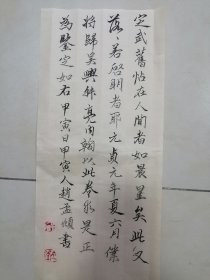 定武舊帖在人間者如晨星矣此又
落落若啓明者耶元貞元年夏六月僕
將歸吳興鮮亮內翰以此卷求是正
為鑒定如右甲寅日甲寅人趙孟頫書